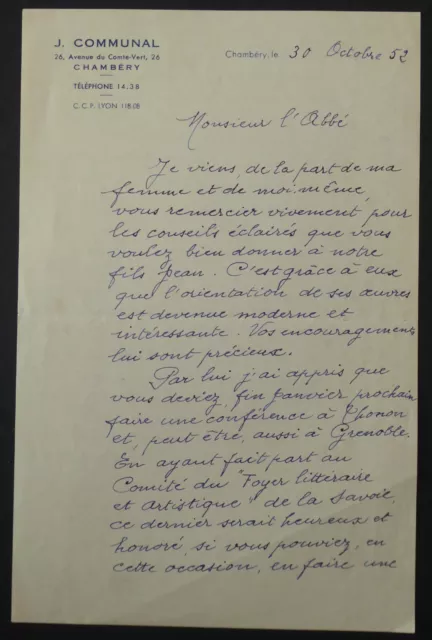 J. COMMUNAL
26, Avenue du Comte-Vert, 26
CHAMBÉRY
TÉLÉPHONE 14.38
C.C.P. LYON 118-08
Chambéry, le 30 Octobre 52
Monsieur l'Abbé
Je viens, de la part de ma
femme et de moi même,
vous remercier vivement pour
les conseils éclairés que vous
voulez bien donner à notre
fils Jean. C'est grâce à eux
que l'orientation de ses œuvres
est devenue moderne et
intéressante. Vos encouragements
lui sont précieux.
Par lui j'ai appris que
vous deviez, fin Janvier prochain
faire une conférence à Thonon
et, peut être, aussi à Grenoble.
En ayant fait part au
Comité du "Foyer littéraire
et artistique" de la Savoie,
ce dernier serait heureux et
honoré, si vous pouviez, en
cette occasion, en faire une